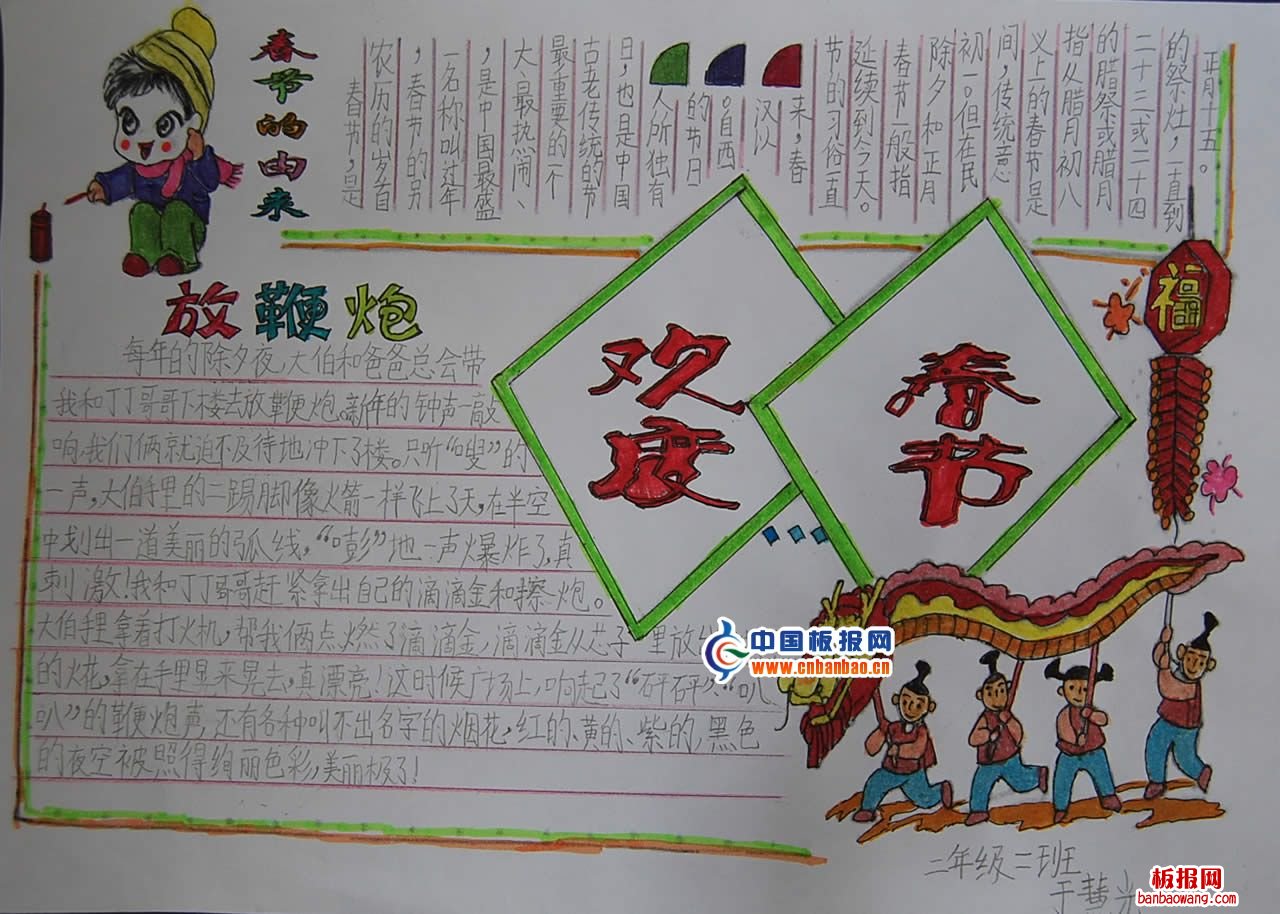 春节的由来
春节，是
农历的岁首
，春节的另
一名称叫过年
，是中国最盛
大、最热闹、
最重要的一个
古老传统的节
日，也是中国
人所独有
的节日
。自西
汉以
来，春
节的习俗一直
延续到今天。
春节一般指
除夕和正月
初一。但在民
间，传统意
义上的春节是
指从腊月初八
的腊祭或腊月
二十三或二十四
的祭灶，一直到
正月十五。
欢度
春节
福
放鞭炮
每年的除夕夜，大伯和爸爸总会带
我和丁丁哥哥下楼去放鞭炮。新年的钟声一敲
响，我们俩就迫不及待地冲下了楼。只听“嗖”的
一声，大伯手里的二踢脚像火箭一样飞上了天，在半空
中划出一道美丽的弧线，“嘭”地一声爆炸了，真
刺激！我和丁丁哥哥赶紧拿出自己的滴滴金和擦炮。
大伯手里拿着打火机，帮我俩点燃了滴滴金，滴滴金从芯子里放出
的火花，拿在手里晃来晃去，真漂亮！这时候广场上，响起了“砰砰”“叭
叭”的鞭炮声，还有各种叫不出名字的烟花，红的、黄的、紫的，黑色
的夜空被照得绚丽色彩，美丽极了！
中国板报网
www.cnbanbao.cn
二年级二班
于慧
板报网
banbaowang.com